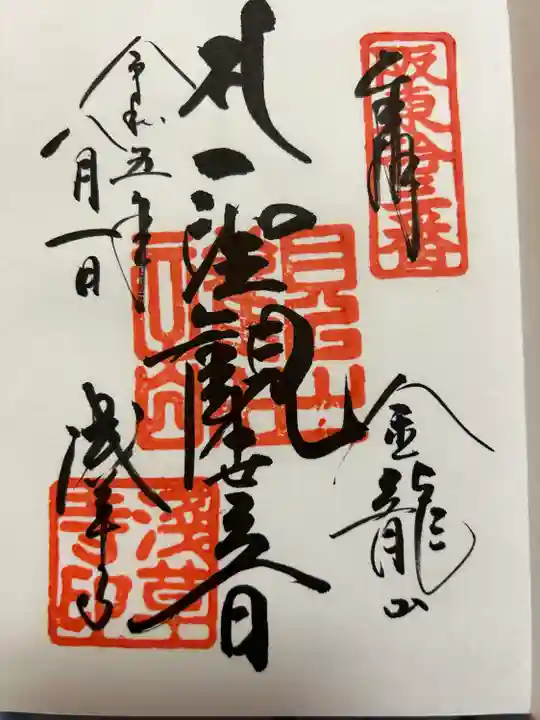 奉拝
阪東拾三番
金龍山
聖観世音
令和五年
八月一日
浅草寺
淺草寺印